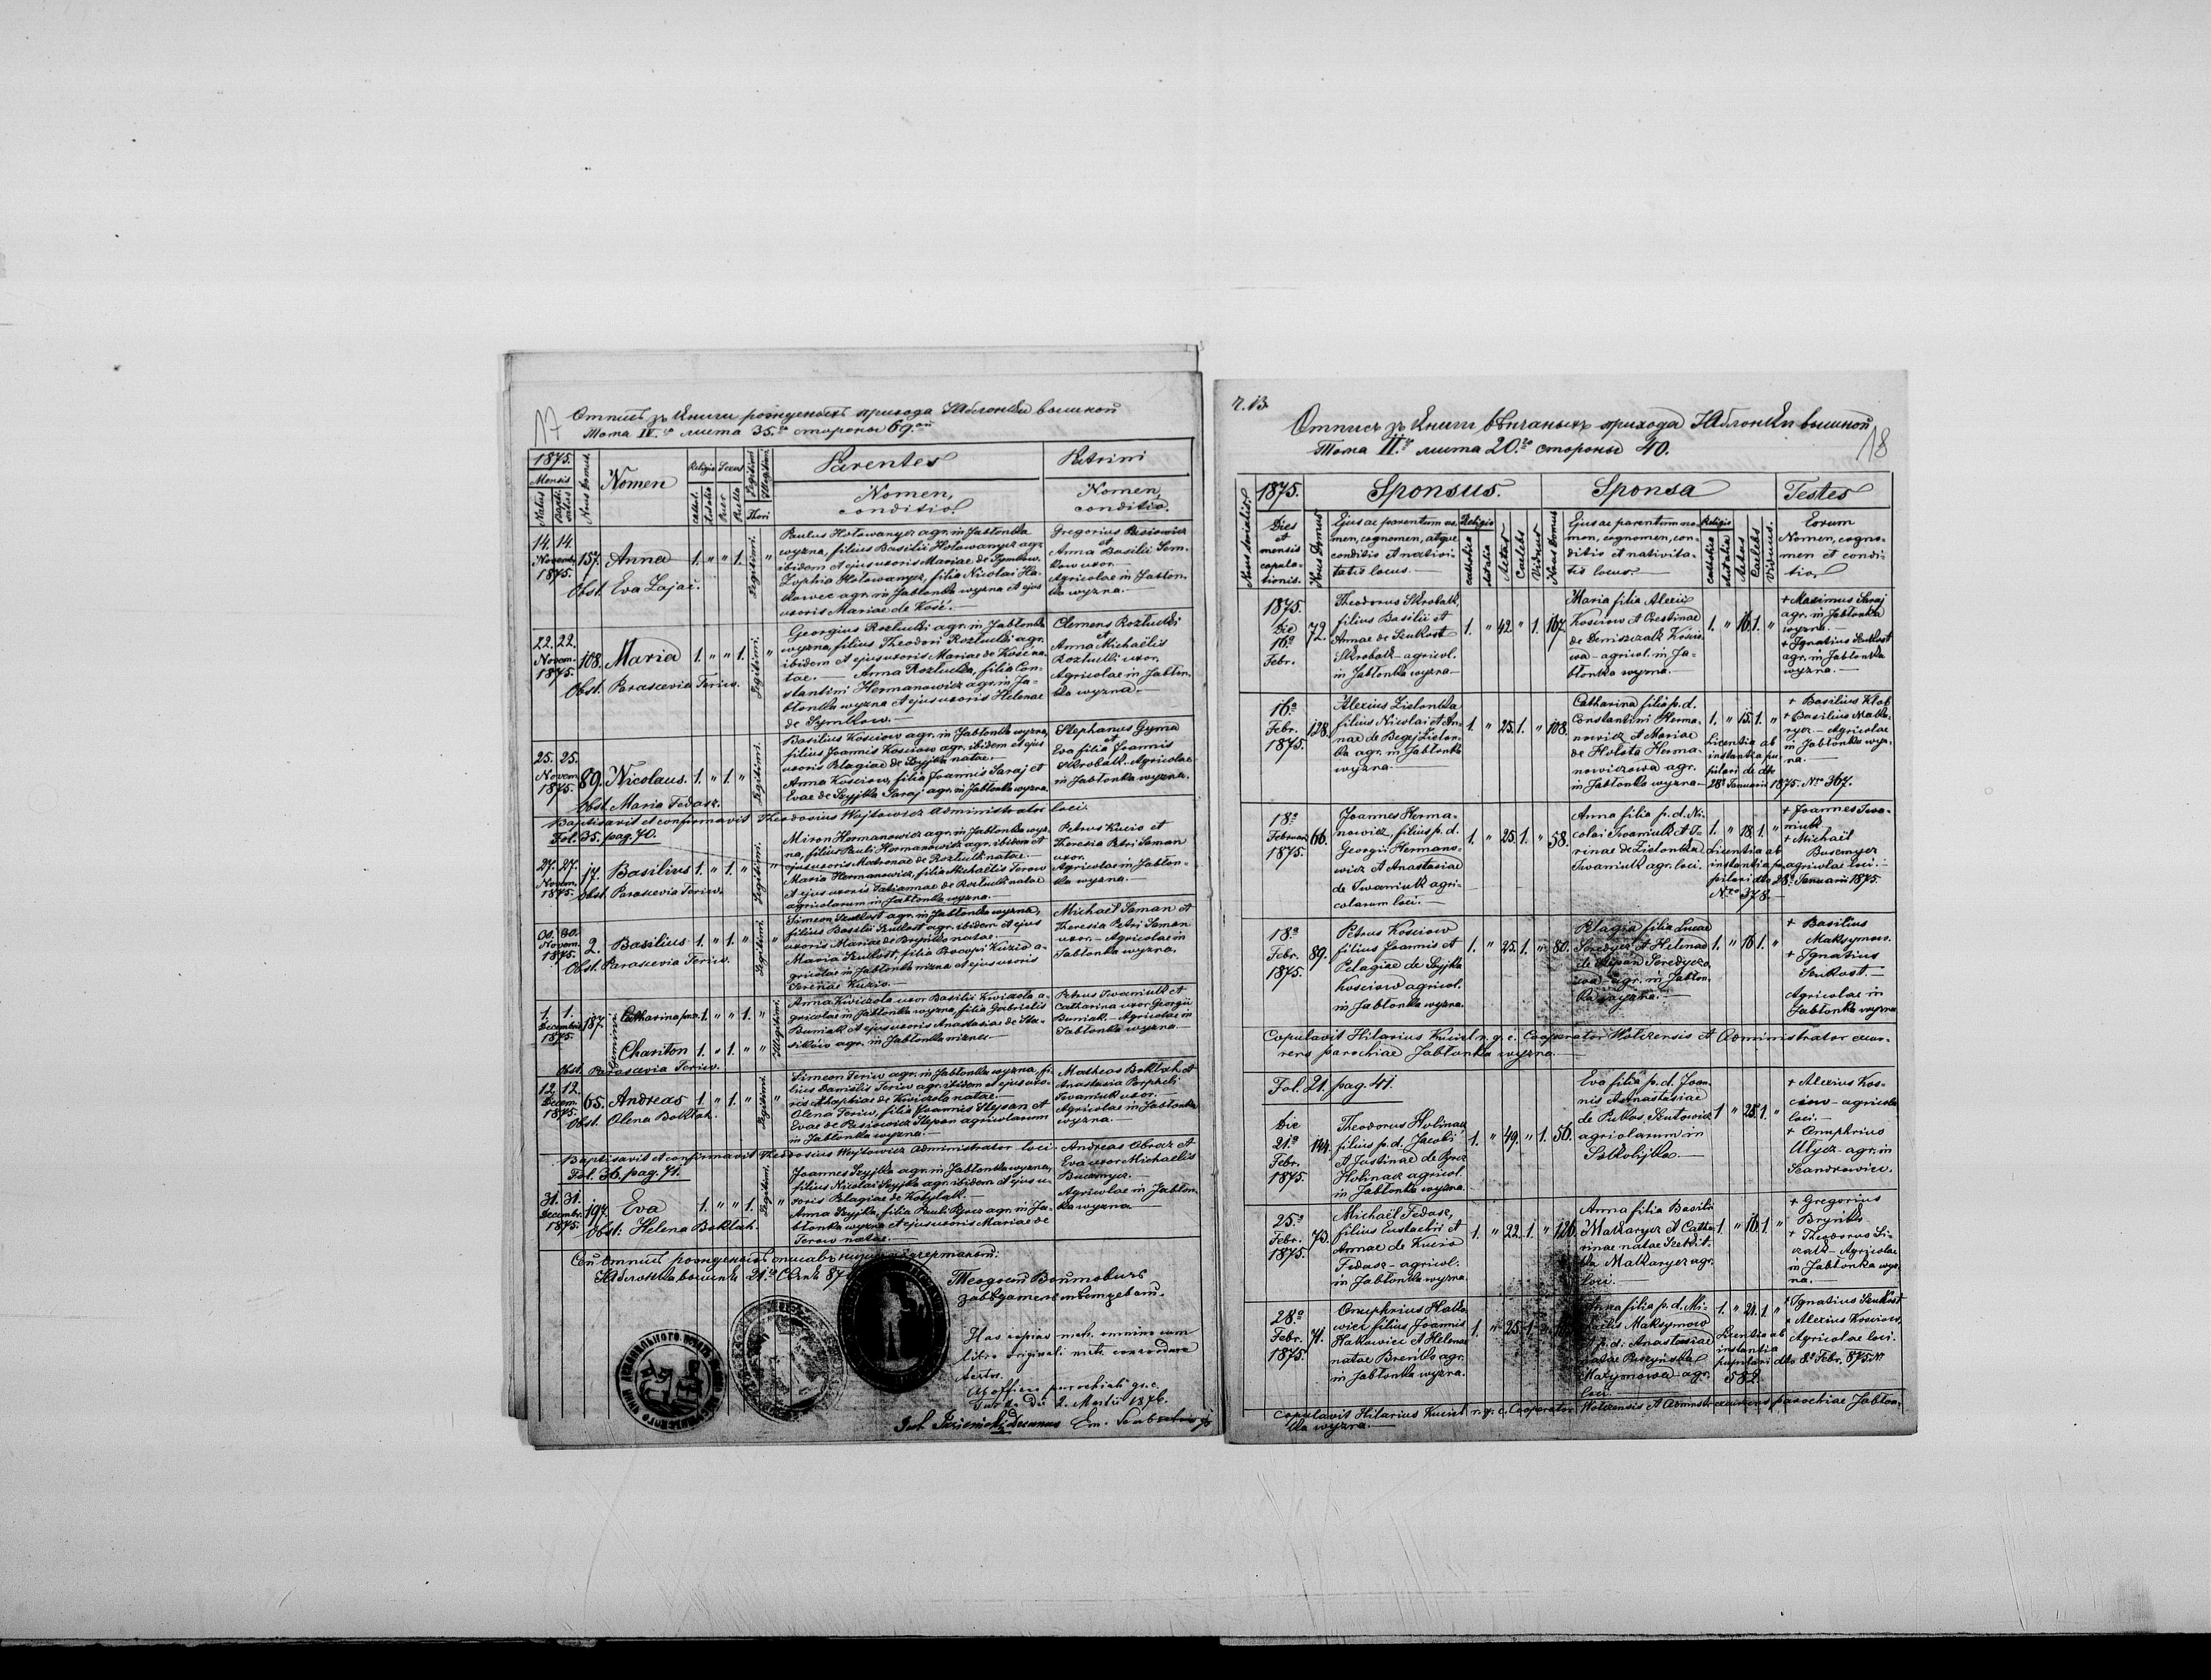 17
Отписъ зъ Книги рожденыхъ прихода Яблонки вышной
Тома IV. листа 35. стороны 69.
1875.
Mensis
Natus
Baptisatus
Nrus domus.
Nomen
Religio
Sexus
cathol.
Puer
Puella
Legitimi
Illegitimi
Thori
Parentes
Nomen,
conditio
Patrini
Nomen,
conditio.
14. 14.
Novemb.
1875.
157. Anna 1. " " 1. Legitimi. "
Obst. Eva Zajac.
Paulus Hołowanycz agr. in Jabłonka
wyzna, filius Basilii Hołowanycz agr.
ibidem et ejus uxoris Mariae de Symkow.
Zophia Hołowanycz, filia Nicolai Ha-
kowec agr. in Jabłonka wyzna et ejus
uxoris Mariae de Kość.—
Gregorius Pasiowicz
et
Anna Basilii Sym-
kow uxor.
Agricolae in Jabłon-
ka wyzna.—
22. 22.
Novem.
1875.
108. Maria 1. " " 1. Legitimi. "
Obst. Parascevia Teriw.
Georgius Rozłucki agr. in Jabłonka
wyzna, filius Theodori Rozłucki agr.
ibidem et ejus uxoris Mariae de Kość na-
tae.— Anna Rozłucka, filia Con-
stantini Hermanowicz agr. in Ja-
błonka wyzna et ejus uxoris Helenae
de Symkow.—
Clemens Rozłucki
et
Anna Michaëlis
Rozłucki uxor.
Agricolae in Jabłon-
ka wyzna.—
25. 25.
Novem.
1875.
89. Nicolaus. 1. " 1. " Legitimi.
Obst. Maria Fedasz.
Basilius Kosciow agr. in Jabłonka wyzna,
filius Joannis Kosciow agr. ibidem et ejus
uxoris Pelagiae de Szyjka natae.—
Anna Kosciow, filia Joannis Saraj et
Evae de Szyjka Saraj agr. in Jabłonka wyzna.
Stephanus Gyma
et
Eva filia Joannis
Skrobalk. Agricolae
in Jabłonka wyzna.
Baptisavit et confirmavit Theodosius Wojtowicz Administrator loci.
Fol. 35. pag. 70.
27. 27.
Novem.
1875.
17. Basilius 1. " 1. " Legitimi. "
Obst. Parascevia Teriw.
Miron Hermanowicz agr. in Jabłonka wyz-
na, filius Pauli Hermanowicz agr. ibidem et
ejus uxoris Matronae de Rozłucki natae.—
Maria Hermanowicz, filia Michaëlis Terow
et ejus uxoris Tatiannae de Rozłucki natae
agricolarum in Jabłonka wyzna.—
Petrus Kucio et
Theresia Petri Saman
uxor.
Agricolae in Jabłon-
ka wyzna.—
30. 30.
Novem.
1875.
2. Basilius 1. " 1. " Legitimi. "
Obst. Parascevia Teriw.
Simeon Szukost agr. in Jabłonka wyzna,
filius Basilii Szukost agr. ibidem et ejus
uxoris Mariae de Brynko natae.—
Maria Szukost, filia Procopi Kuzio a-
gricolae in Jabłonka nizna et ejus uxoris
Irenae Kuzio.—
Michaël Saman et
Theresia Petri Saman
uxor.— Agricolae in
Jabłonka wyzna.
1. 1.
Decembr.
1875.
187. Gemini Catharina 1. " " 1. Illegitimi.
Chariton 1. " 1. " "
Obst. Parascevia Teriw.
Anna Kwiczola uxor Basilii Kwiczola a-
gricolae in Jabłonka wyzna, filia Gabrielis
Buniak et ejus uxoris Anastasiae de Sta-
sikow agr. in Jabłonka niznea.—
Petrus Iwaniuk et
Catharina uxor Georgii
Buniak.— Agricolae in
Jabłonka wyzna.—
12. 12.
Decem.
1875.
65. Andreas 1. " 1. " Legitimi. "
Obst. Olena Boklah.
Simeon Teriw agr. in Jabłonka wyzna, fi-
lius Danielis Teriw agr. ibidem et ejus uxo-
ris Agaphiae de Kwiczola natae.—
Olena Teriw, filia Joannis Stepan et
Evae de Pasiowicz Stepan agricolarum
in Jabłonka wyzna.—
Matheas Boklah et
Anastasia Porphyli
Iwaniuk uxor.
Agricolae in Jabłonka
wyzna.—
Baptisavit et confirmavit Theodosius Wojtowicz Administrator loci.
Fol. 36. pag. 71.
31. 31.
Decembr.
1875.
197. Eva 1. " " 1. Legitimi. "
Obst: Helena Boklah.
Joannes Szyjka agr. in Jabłonka wyzna,
filius Nicolai Szyjka agr. ibidem et ejus u-
xoris Pelagiae de Kotylak.—
Anna Szyjka, filia Pauli Byc agr. in Ja-
błonka wyzna et ejus uxoris Mariae de
Terow natae.—
Andreas Obraz et
Eva uxor Michaëlis
Busmycz.
Agricolae in Jabłon-
ka wyzna.
Теодосій Войтовичъ
завѣдатель
Has copias metr. omnino cum
libro originali metr. concordare
testor.
Ab officio parochiali gr. c.
2. Martii 1876.
Decanus
ч. 13.
18
Отписъ зъ Книги вѣнчаныхъ прихода Яблонки вышной,
Тома II. листа 20. стороны 40.
Nrus serialis.
1875.
Dies
et
mensis
copula-
tionis.
Nrus Domus
Sponsus.
Ejus ac parentum no-
men, cognomen, atque
conditio et nativi-
tatis locus.—
Religio
catholica
aut alia
Aetas
Caelebs
Viduus
Nrus Domus
Sponsa
Ejus ac parentum no-
men, cognomen, con-
ditio et nativita-
tis locus.—
Religio
catholica
aut alia
Aetas
Caelebs
Viduus.
Testes
Eorum
Nomen, cogno-
men et condi-
tio
1875.
Die
16ª
Febr.
72.
Theodorus Skrobalk,
filius Basilii et
Annae de Szukost
Skrobalk - agricol.
in Jabłonka wyzna—
1. " 42. " 1. 167.
Maria filia Alexii
Kosciow et Cristinae
de Deniszczak Kościo-
wa - agricol. in Ja-
błonka wyzna.—
1. " 16. 1. "
+ Maximus Saraj
agr. in Jabłonka
wyzna.—
+ Ignatius Szukost
agr. in Jabłonka
wyzna.—
16ª
Febr.
1875.
128.
Alexius Zielonka
filius Nicolai et An-
nae de Begej Zielon-
ka agr. in Jabłonka
wyzna—
1. " 25. 1. " 108.
Catharina filia p. d.
Constantini Herma-
nowicz et Mariae
de Holota Herma-
nowiczowa agr.
in Jabłonka wyzna—
1. " 15. 1. "
Licentia ab
instantia pu-
pilari de dto
28ª Januarii 1875. Nro 367.
+ Basilius Kłob
+ Basilius Maka-
rycz - Agricolae
in Jabłonka wyz-
na.—
18ª
Februar.
1875.
66.
Joannes Herma-
nowicz, filius p. d.
Georgii Hermano-
wicz et Anastasiae
de Iwaniuk agri-
colarum loci.—
1. " 25. 1. " 58.
Anna filia p. d. Ni-
colai Iwaniuk et I-
rinae de Zielonka
Iwaniuk agr. loci.
1. " 18. 1. "
Licentia ab
instantia pu-
pilari dto 28ª Januarii 1875.
Nro 378.—
+ Joannes Iwa-
niuk
+ Michaël
Busmycz
agricolae loci.—
18ª
Febr.
1875.
89.
Petrus Kosciow
filius Joannis et
Pelagiae de Szyjka
Kosciow agricol.
in Jabłonka wyzna.
1. " 25. 1. " 80.
Pelagia filia Lucae
Seredycz et Helenae
de Stepan Seredycz-
owa - agr. in Jabłon-
ka wyzna.—
1. " 16. 1. "
+ Basilius
Maksymow.
+ Ignatius
Szukost.—
Agricolae in
Jabłonka wyzna
Copulavit Hilarius Kuziel r. g. c. Cooperator Wołczensis et Administrator excur-
rens parochiae Jabłonka wyzna.—
Fol. 21. pag. 41.
Die
21ª
Febr.
1875.
144.
Theodorus Holinacz
filius p. d. Jacobi
et Justinae de Bycz
Holinacz agricol.
in Jabłonka wyzna.
1. " 49. " 1. 56.
Eva filia p. d. Joan-
nis et Anastasiae
de Pukas Szutowicz
agricolarum in
1 " 25. 1. "
+ Alexius Kos-
ciow - agricola
loci.—
+ Onuphrius
Ulycz - agr. in
25ª
Febr.
1875.
73.
Michaël Fedasz,
filius Eustachii et
Annae de Kucio
Fedasz - agricol.
in Jabłonka wyzna
1. " 22. 1. " 126.
Anna filia Basilii
Makarycz et Catha-
rinae natae
Makarycz agr.
loci.—
1 " 16. 1 "
+ Gregorius
Brynko
+ Theodorus
Agricolae
in Jabłonka wyz-
na.—
28ª
Febr.
1875.
71.
Onuphrius Hako-
wiec filius Joannis
Hakowiec et Helenae
natae Brenko agr.
in Jabłonka wyzna.
1. " 25. 1.
Anna filia p. d. Mi-
chaëlis Maksymow
et p. d. Anastasiae
natae
agr.
loci.
1. " 24. 1. "
Licentia ab
instantia
pupilari dto 8ª Febr. 875. N.
582.
+ Ignatius Szukost
+ Alexius Kosciow
Agricolae loci.
Copulavit Hilarius Kuziel r. g. c. Cooperator Wołczensis et Adminstr. excurrens parochiae Jabłon-
ka wyzna.—